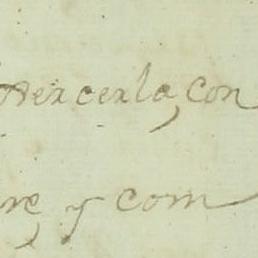 exercerla, con
re, y com